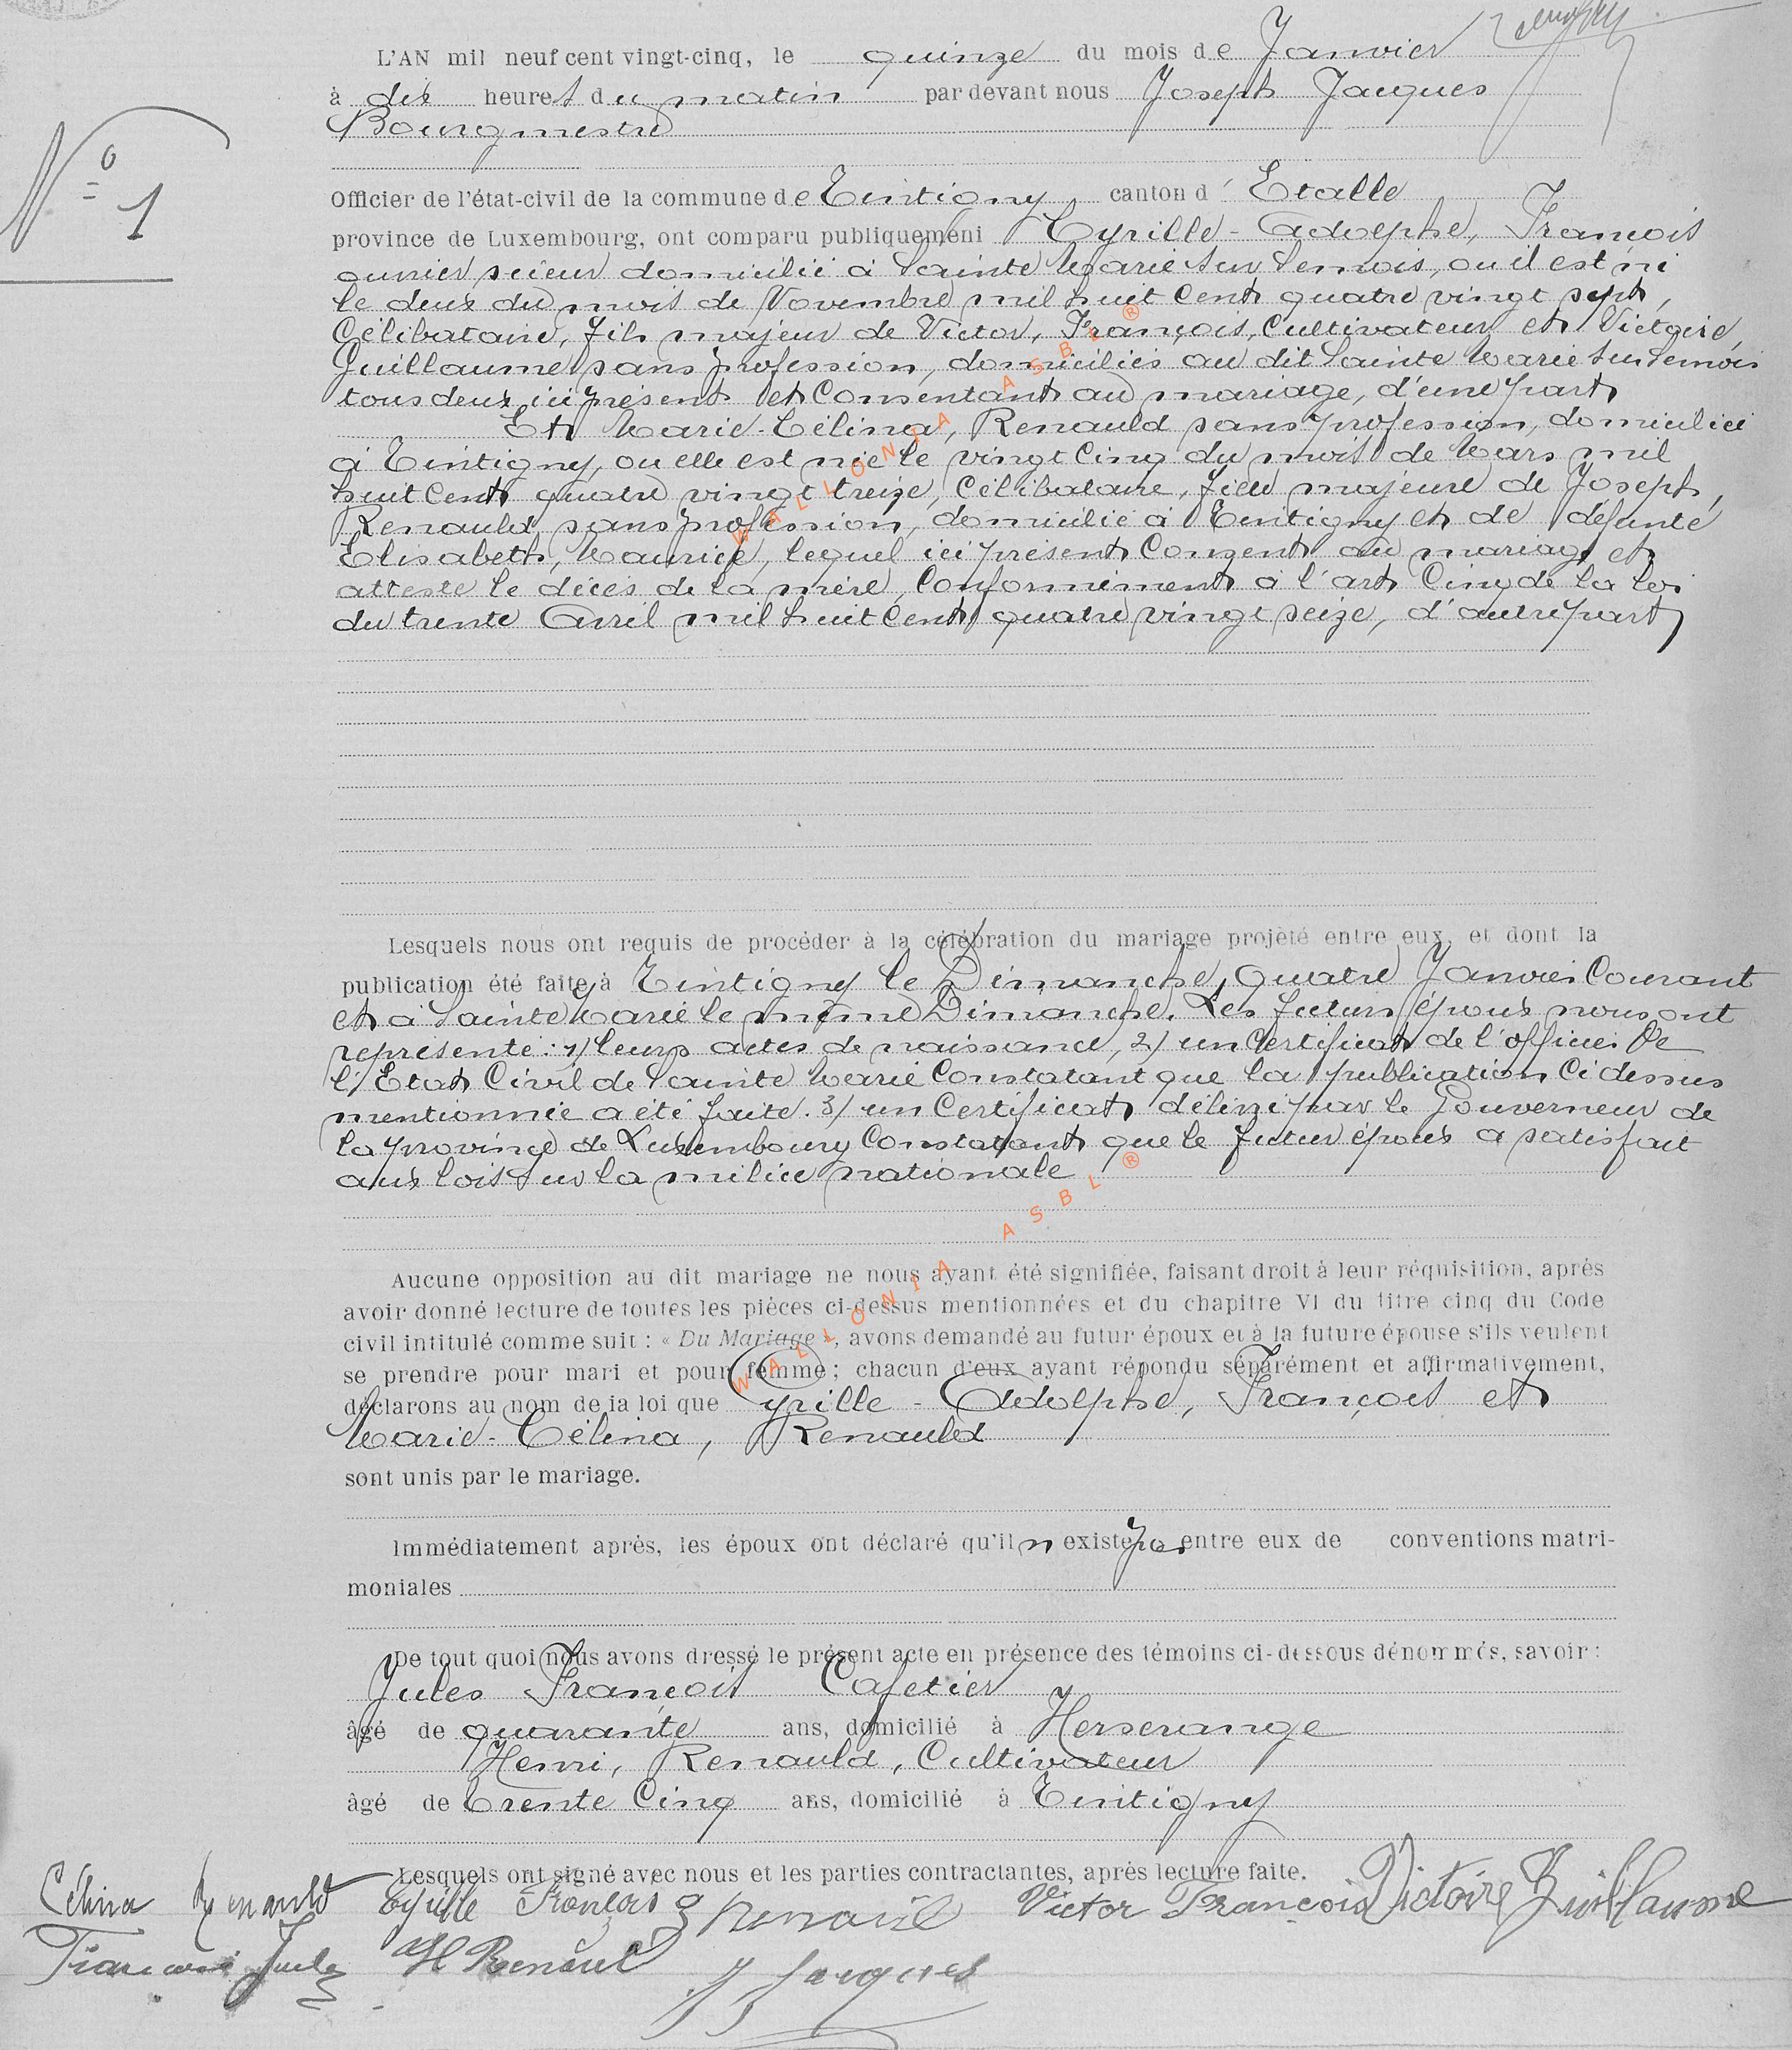 L'AN mil neuf cent vingt-cinq, le quinze du mois de Janvier
à dix heures du matin par devant nous Joseph Jacques
Bourgmestre
N° 1
Officier de l'état-civil de la commune de Tintigny canton d' Etalle
province de Luxembourg, ont comparu publiquement Cyrille-Adolphe, François
ouvrier scieur domicilié à Sainte Marie sur Semois, ou il est né
le deux du mois de Novembre mil huit cent quatre vingt sept,
Célibataire, fils majeur de Victor, François, Cultivateur et Victoire,
Guillaume sans profession, domiciliés au dit Sainte Marie sur Semois
tous deux ici présent et Consentant au mariage, d'une part
Et Marie-Célina, Renauld sans profession, domiciliée
à Tintigny, ou elle est née le vingt Cinq du mois de Mars mil
huit Cent quatre vingt treize, Célibataire, fille majeure de Joseph,
Renauld, sans profession, domicilié à Tintigny et de défunte
Elisabeth, Maurice, lequel ici présent Consent au mariage et
atteste le décès de la mère, Conformément à l'art Cinq de la loi
du trente Avril mil huit Cent quatre vingt seize, d'autre part
Lesquels nous ont requis de procéder à la célébration du mariage projeté entre eux, et dont la
publication été faite à Tintigny le Dimanche, Quatre Janvier Courant
et à Sainte Marie le même Dimanche. Les futurs époux nous ont
représenté: 1/ leurs actes de naissance, 2/ un Certificat de l'officier De
l'Etat Civil de Sainte Marie Constatant que la publication Ci dessus
mentionnée a été faite. 3/ un Certificat délivré par le Gouverneur de
la province de Luxembourg Constatant que le futur époux a satisfait
aux lois sur la milice nationale
Aucune opposition au dit mariage ne nous ayant été signifiée, faisant droit à leur réquisition, après
avoir donné lecture de toutes les pièces ci-dessus mentionnées et du chapitre VI du titre cinq du Code
civil intitulé comme suit : « Du Mariage », avons demandé au futur époux et à la future épouse s'ils veulent
se prendre pour mari et pour femme ; chacun d'eux ayant répondu séparément et affirmativement,
déclarons au nom de la loi que Cyrille - Adolphe, François et
Marie-Célina, Renauld
sont unis par le mariage.
Immédiatement après, les époux ont déclaré qu'il n existe pas entre eux de conventions matri-
moniales
De tout quoi nous avons dressé le présent acte en présence des témoins ci-dessous dénommés, savoir :
Jules François Cafetier
âgé de quarante ans, domicilié à Herserange
Henri, Renauld, Cultivateur
âgé de Trente Cinq ans, domicilié à Tintigny
Lesquels ont signé avec nous et les parties contractantes, après lecture faite.
Célina Renauld Cyrille François J Renauld Victor François Victoire Guillaume
François Jules H Renaul J Jacques
WALLONIA ASBL ®
WALLONIA ASBL ®